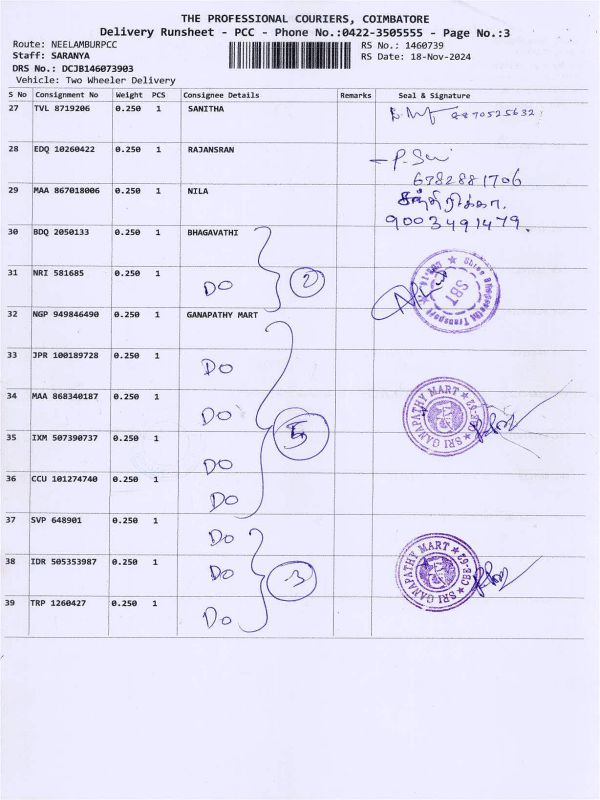 THE PROFESSIONAL COURIERS, COIMBATORE
Delivery Runsheet - PCC - Phone No.:0422-3505555 - Page No.:3
Route: NEELAMBURPCC RS No.: 1460739
Staff: SARANYA RS Date: 18-Nov-2024
DRS No.: DCJB146073903
Vehicle: Two Wheeler Delivery
S No Consignment No Weight PCS Consignee Details Remarks Seal & Signature
27 TVL 8719206 0.250 1 SANITHA 8870525632
28 EDQ 10260422 0.250 1 RAJANSRAN
6782881706
29 MAA 867018006 0.250 1 NILA
9003491479.
30 BDQ 2050133 0.250 1 BHAGAVATHI
31 NRI 581685 0.250 1 DO 2 SBT
32 NGP 949846490 0.250 1 GANAPATHY MART
33 JPR 100189728 0.250 1 DO
34 MAA 868340187 0.250 1 DO SRI GANAPATHY MART ★ CBE-62 ★
35 IXM 507390737 0.250 1 DO 5
36 CCU 101274740 0.250 1 DO
37 SVP 648901 0.250 1 DO
38 IDR 505353987 0.250 1 DO 3 SRI GANAPATHY MART ★ CBE-62 ★
39 TRP 1260427 0.250 1 DO